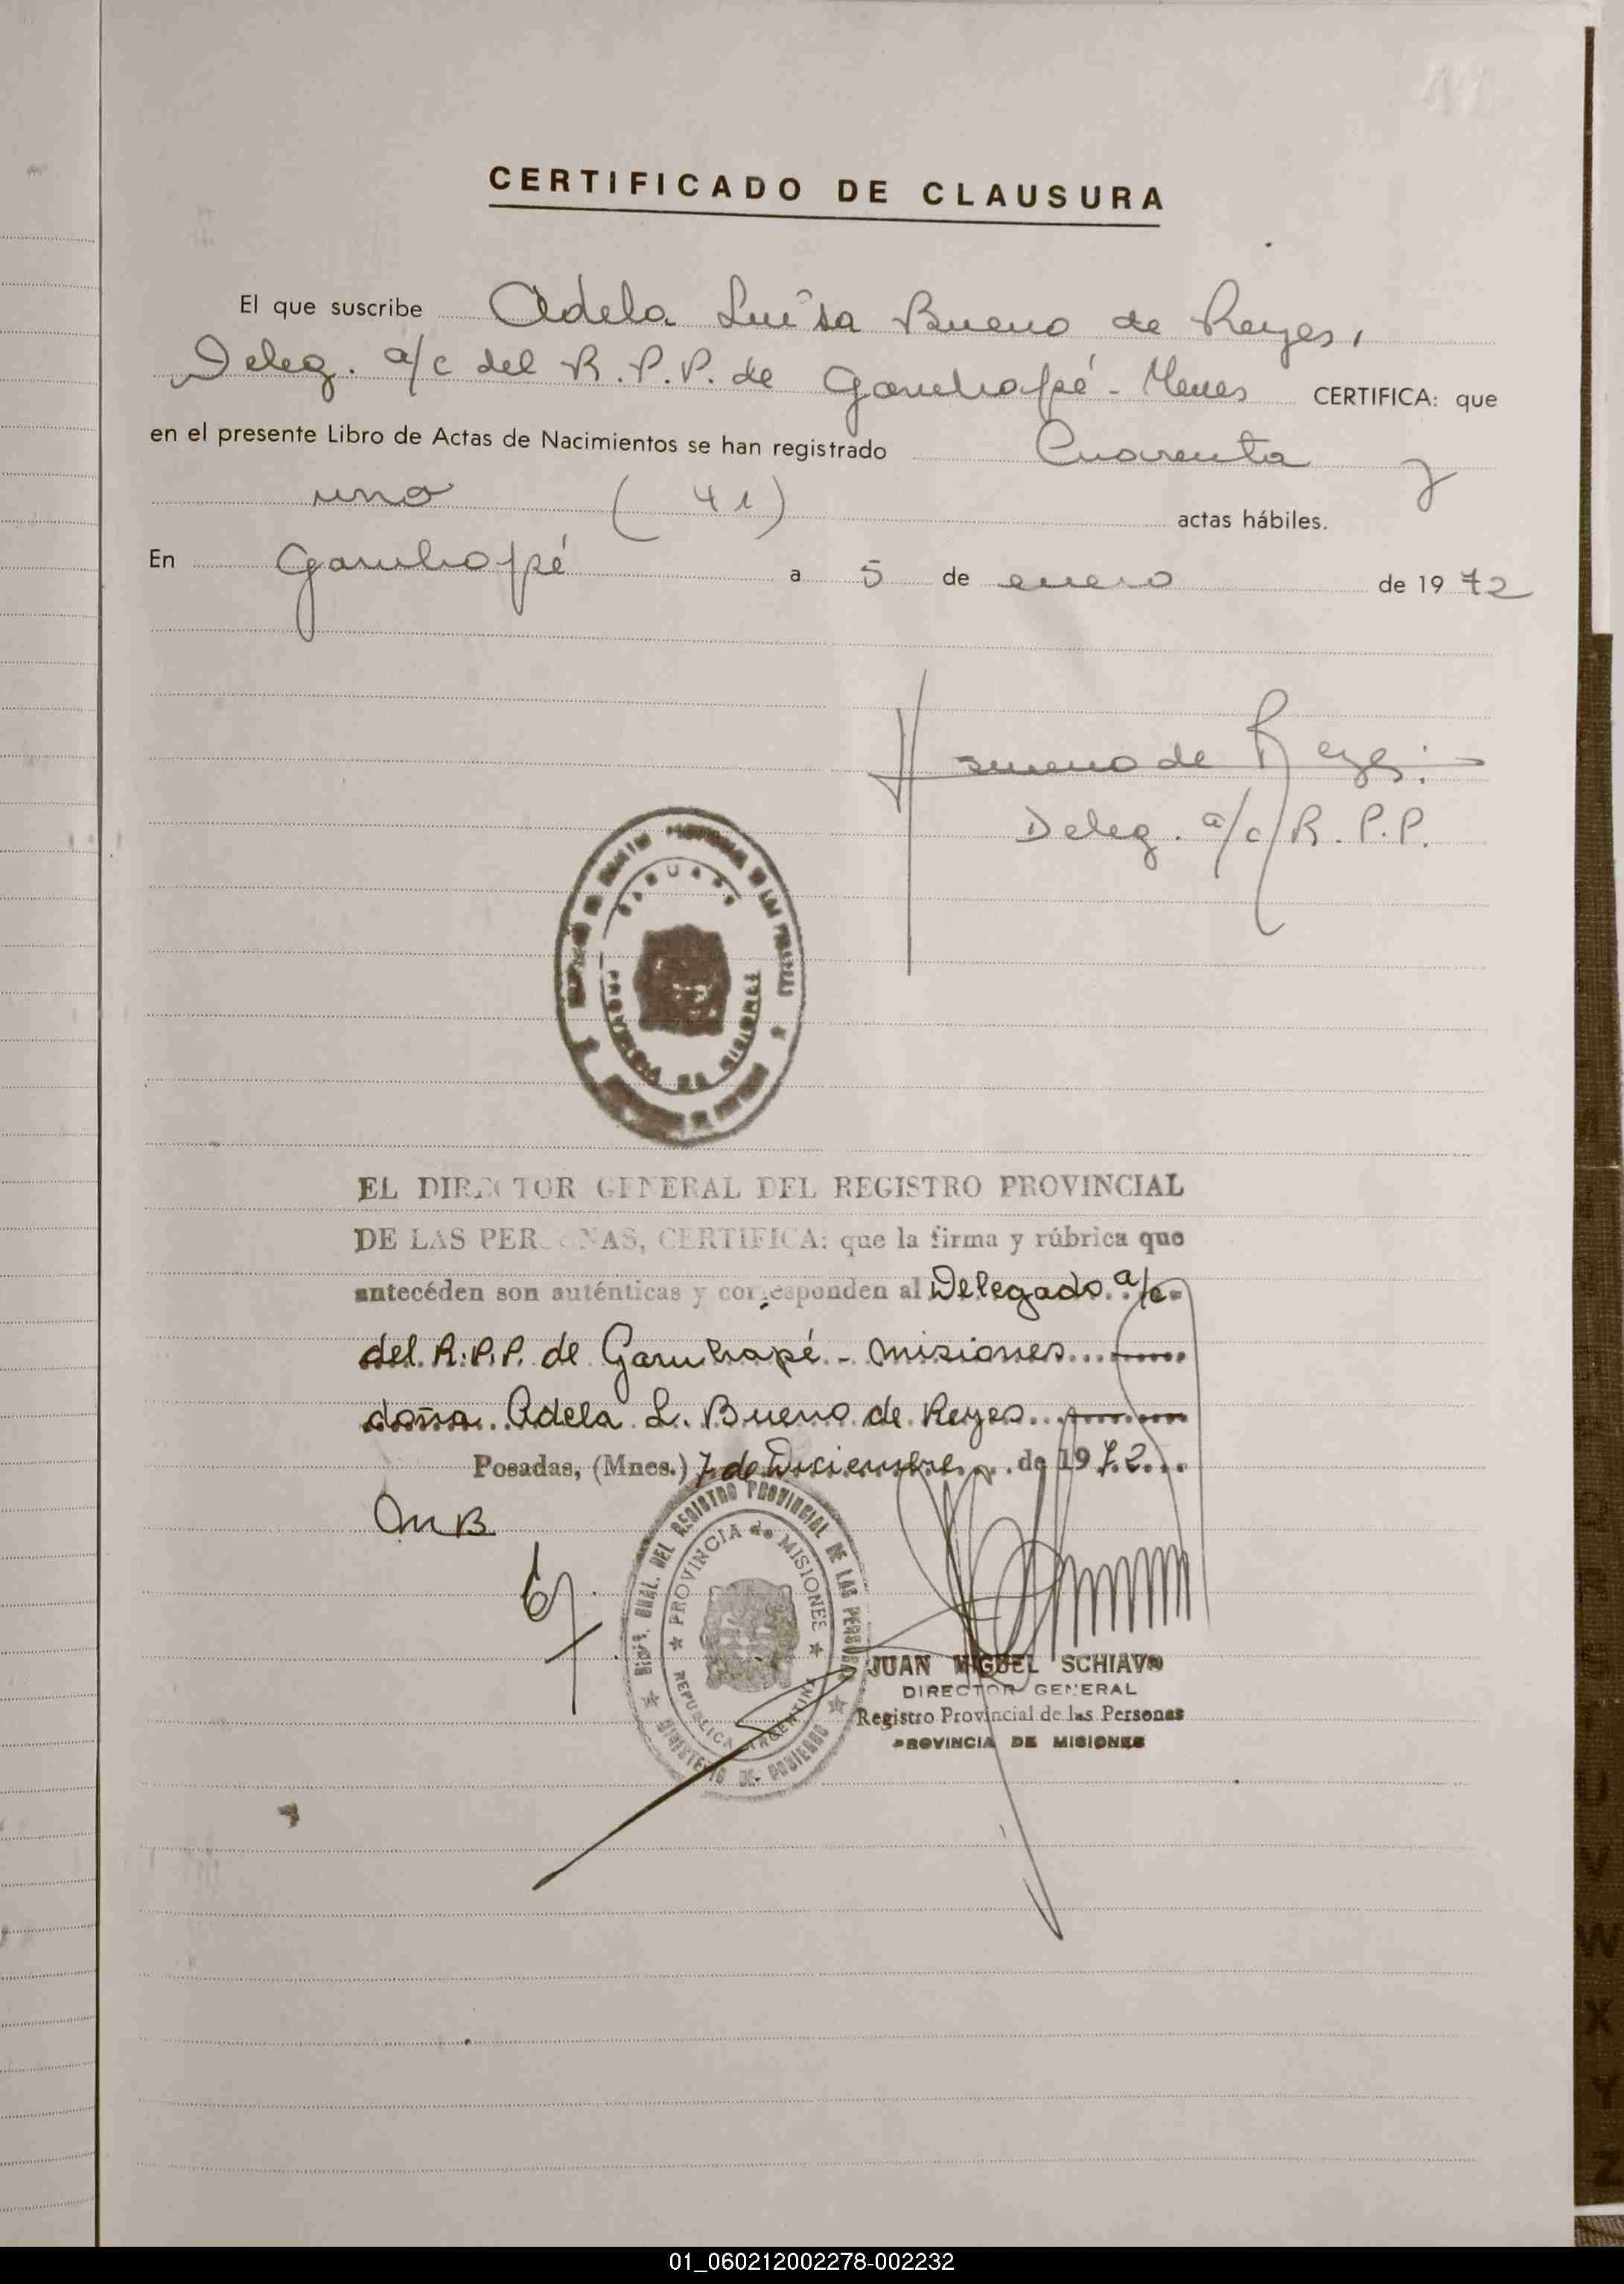 CERTIFICADO DE CLAUSURA
El que suscribe Adela Luisa Bueno de Reyes,
Deleg. a/c del R.P.P. de Garuhapé - Mnes CERTIFICA: que
en el presente Libro de Actas de Nacimientos se han registrado Cuarenta y
uno (41) actas hábiles.
En Garuhapé a 5 de enero de 1972
Bueno de Reyes
Deleg. a/c/R.P.P.
PROVINCIA DE MISIONES
EL DIRECTOR GENERAL DEL REGISTRO PROVINCIAL
DE LAS PERSONAS, CERTIFICA: que la firma y rúbrica que
antecéden son auténticas y corresponden al Delegado a/c
del R.P.P. de Garuhapé - Misiones
doña Adela L. Bueno de Reyes
Posadas, (Mnes.) 7 de Diciembre de 1972
OMB
DEL REGISTRO PROVINCIAL DE LAS PERSONAS
PROVINCIA de MISIONES
REPUBLICA ARGENTINA
MINISTERIO DE GOBIERNO
JUAN MIGUEL SCHIAVO
DIRECTOR GENERAL
Registro Provincial de las Personas
PROVINCIA DE MISIONES
U
V
W
X
Y
Z
01_060212002278-002232